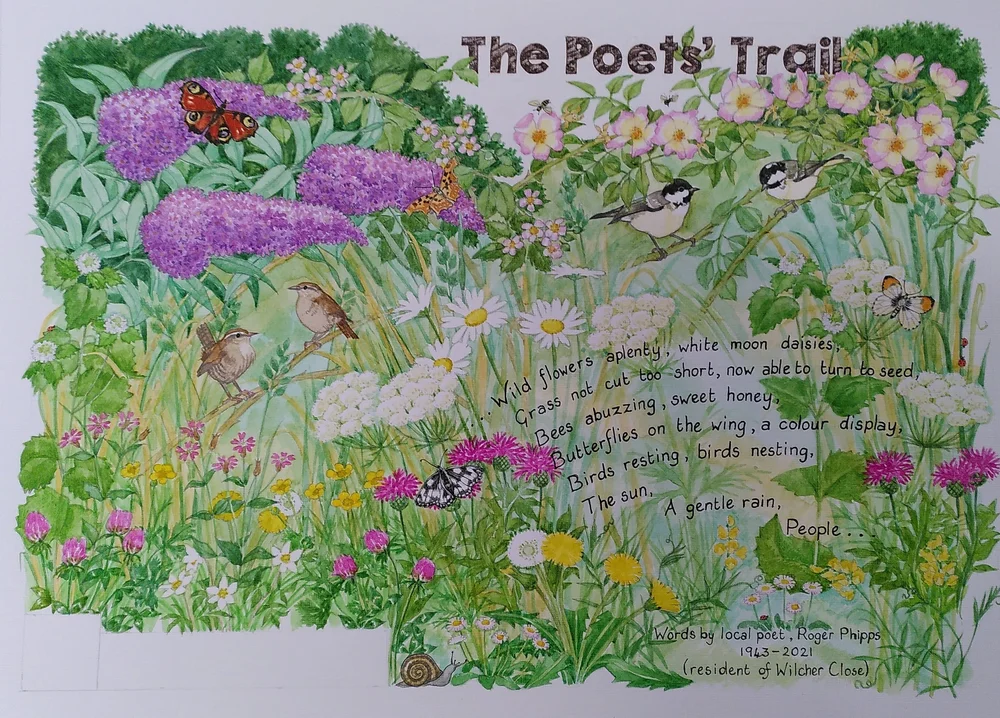 The Poets' Trail
...Wild flowers aplenty, white moon daisies,
Grass not cut too short, now able to turn to seed,
Bees abuzzing, sweet honey,
Butterflies on the wing, a colour display,
Birds resting, birds nesting,
The sun,
A gentle rain,
People...
Words by local poet, Roger Phipps
1943-2021
(resident of Wilcher Close)